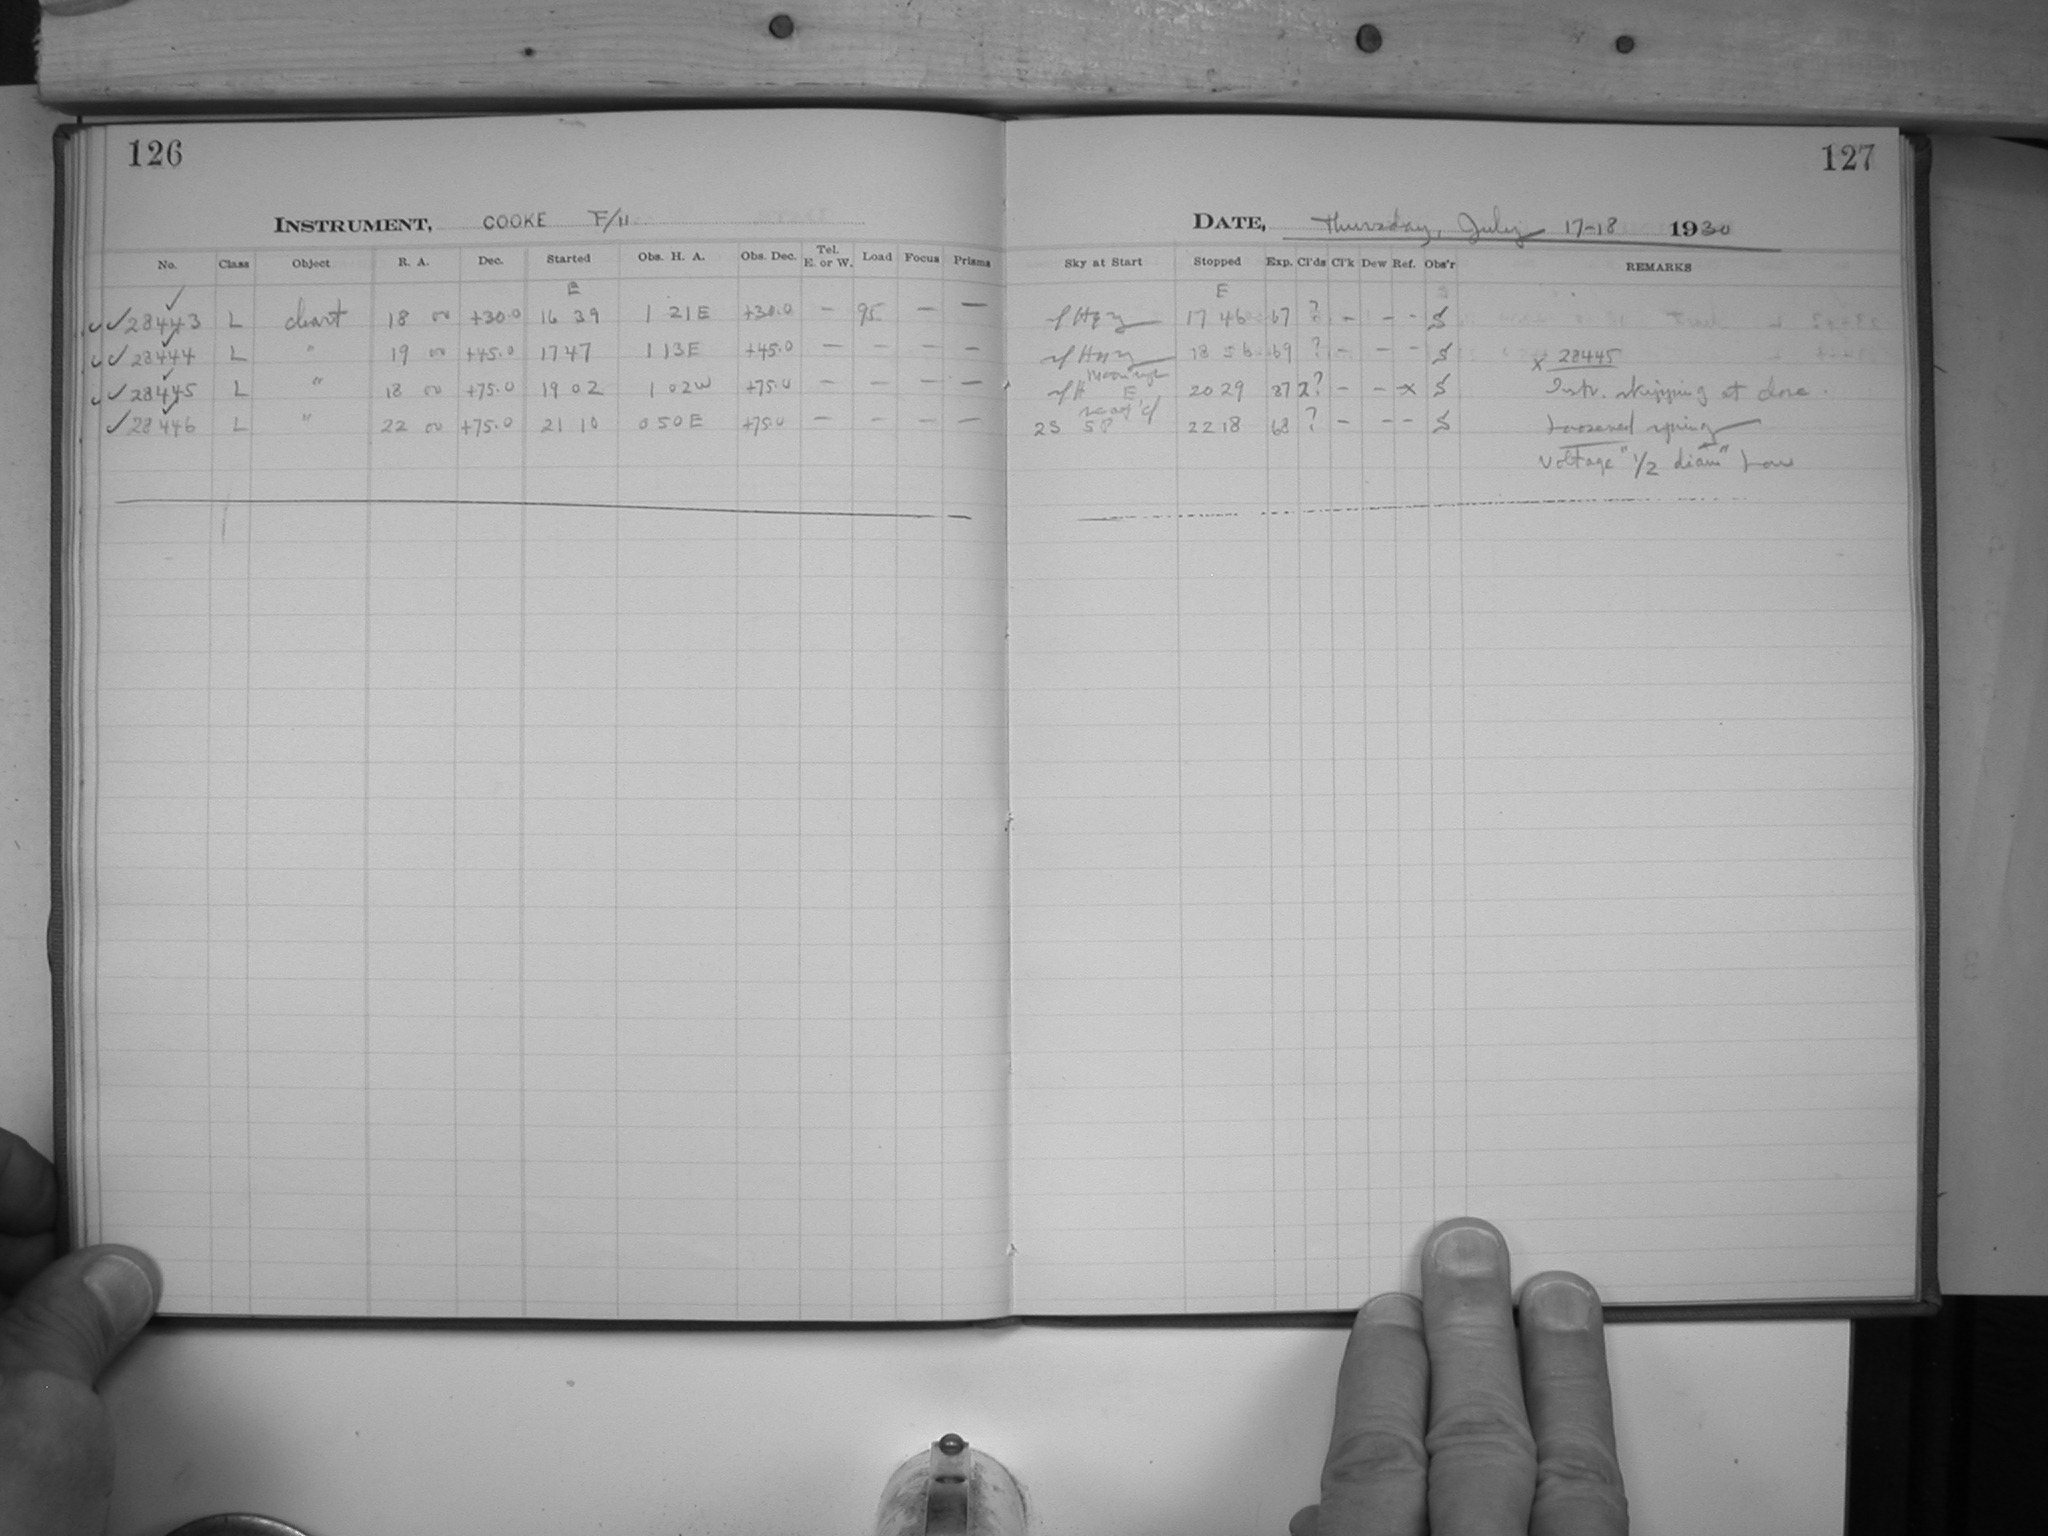 126
INSTRUMENT, COOKE F/11
No. Class Object R. A. Dec. Started Obs. H. A. Obs. Dec. Tel. E. or W. Load Focus Prisms
E
✓✓ 28443 L chart 18 00 +30.0 16 39 1 21 E +30.0 – 95 – –
✓✓ 28444 L " 19 00 +45.0 17 47 1 13 E +45.0 – – – –
✓✓ 28445 L " 18 00 +75.0 19 02 1 02 W +75.0 – – – –
✓ 28446 L " 22 00 +75.0 21 10 0 50 E +75.0 – – – –
127
DATE, Thursday, July 17-18 1930
Sky at Start Stopped Exp. Cl'ds Cl'k Dew Ref. Obs'r REMARKS
E
Hzy 17 46 67 ? – – – S
Hzy 18 56 69 ? – – – S x 28445
H E 20 29 87 2? – – x S Instr. skipping at close.
23 22 18 68 ? – – – S Loosened spring
Voltage "1/2 diam" Low